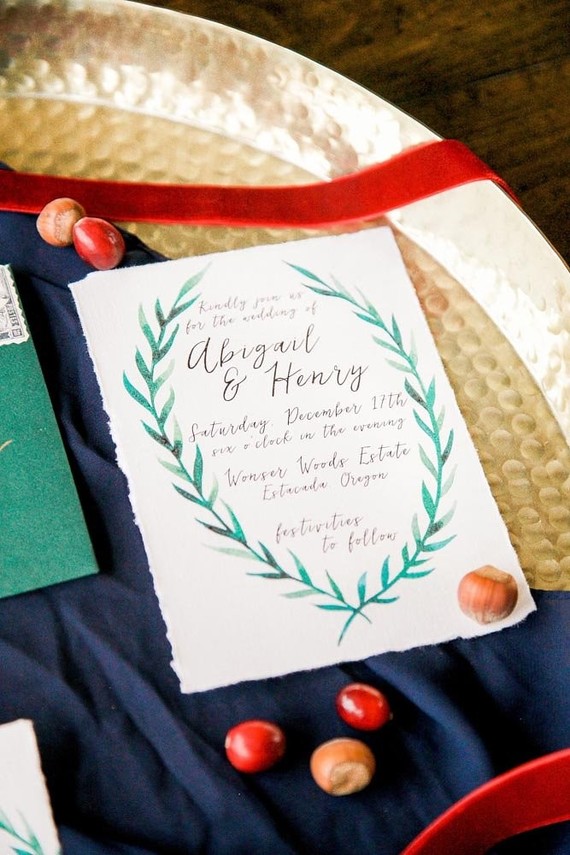 Kindly join us
for the wedding of
Abigail
& Henry
Saturday, December 17th
six o'clock in the evening
Wonser Woods Estate
Estacada Oregon
festivities
to follow